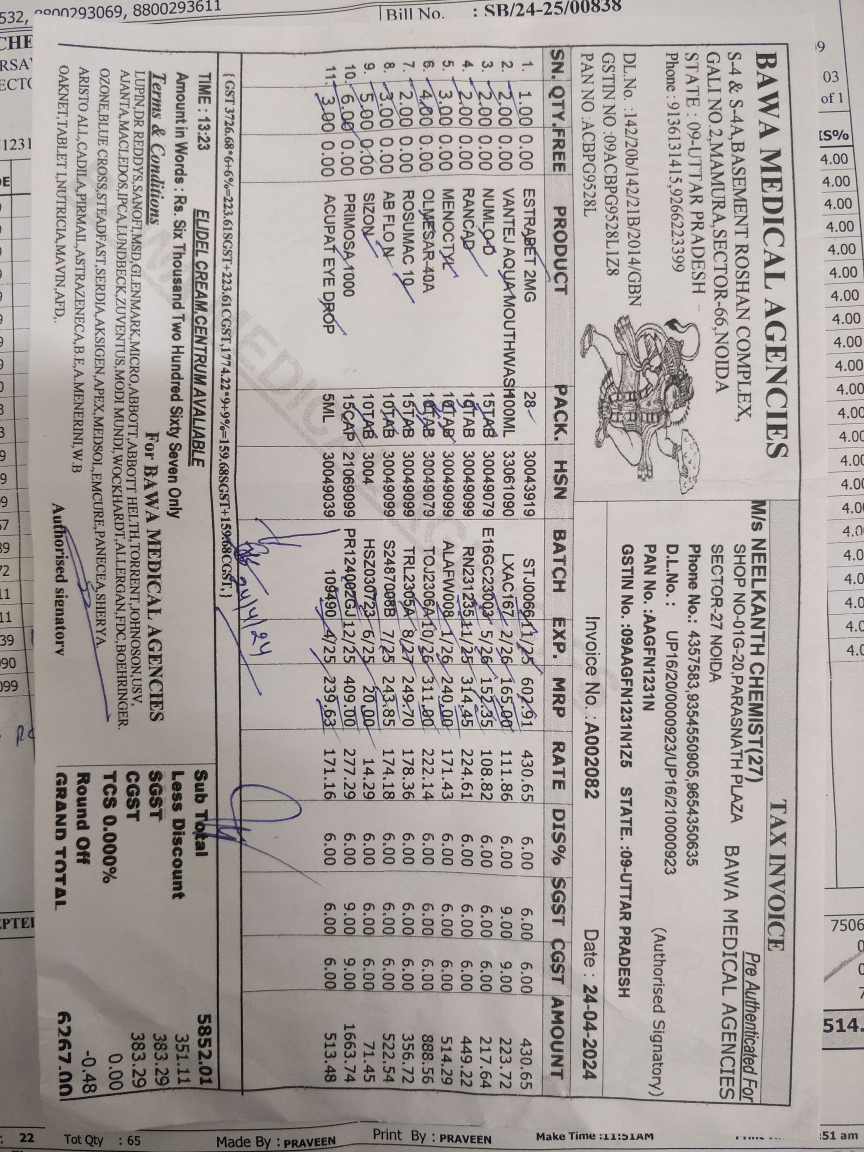 532, 8800293069, 8800293611
Bill No. : SB/24-25/00838
BAWA MEDICAL AGENCIES
S-4 & S-4A,BASEMENT ROSHAN COMPLEX,
GALI NO.2,MAMURA,SECTOR-66,NOIDA
STATE : 09-UTTAR PRADESH
Phone : 9136131415,9266223399
DL.No. :142/20b/142/21B/2014/GBN
GSTIN NO :09ACBPG9528L1Z8
PAN NO .:ACBPG9528L
TAX INVOICE
M/s NEELKANTH CHEMIST(27)
SHOP NO-01G-20,PARASNATH PLAZA
SECTOR-27 NOIDA
Pre Authenticated For
BAWA MEDICAL AGENCIES
Phone No.: 4357583,9354550905,9654350635
D.L.No. : UP16/20/0000923/UP16/210000923
PAN No. :AAGFN1231N
(Authorised Signatory)
GSTIN No. :09AAGFN1231N1Z5 STATE. :09-UTTAR PRADESH
Invoice No : A002082 Date : 24-04-2024
SN. QTY. FREE PRODUCT PACK. HSN BATCH EXP. MRP RATE DIS% SGST CGST AMOUNT
1. 1.00 0.00 ESTRABET 2MG 28 30043919 STJ0066 11/25 602.91 430.65 6.00 6.00 6.00 430.65
2. 2.00 0.00 VANTEJ AQUA MOUTHWASH 100ML 33061090 LXAC167 2/26 165.00 111.86 6.00 9.00 9.00 223.72
3. 2.00 0.00 NUMLO-D 15TAB 30049079 E16GC23003 5/26 152.35 108.82 6.00 6.00 6.00 217.64
4. 2.00 0.00 RANCAD 10TAB 30049099 RN31235 11/25 314.45 224.61 6.00 6.00 6.00 449.22
5. 3.00 0.00 MENOCTYL 10TAB 30049099 ALAFW008 1/26 240.00 171.43 6.00 6.00 6.00 514.29
6. 4.00 0.00 OLMESAR-40A 10TAB 30049079 TOJ2306A 10/26 311.00 222.14 6.00 6.00 6.00 888.56
7. 2.00 0.00 ROSUMAC 10 15TAB 30049099 TRL2305A 8/27 249.70 178.36 6.00 6.00 6.00 356.72
8. 3.00 0.00 AB FLO N 10TAB 30049099 S2487008 7/25 243.85 174.18 6.00 6.00 6.00 522.54
9. 5.00 0.00 SIZON 10TAB 3004 HSZ030723 6/25 20.00 14.29 6.00 6.00 6.00 71.45
10. 6.00 0.00 PRIMOSA 1000 15CAP 21069099 PR124002GJ 12/25 409.00 277.29 6.00 9.00 9.00 1663.74
11. 3.00 0.00 ACUPAT EYE DROP 5ML 30049039 109490 4/25 239.63 171.16 6.00 6.00 6.00 513.48
24/4/24
{ GST 3726.68*6+6%=223.61SGST+223.61CGST,1774.22*9+9%=159.68SGST+159.68CGST,}
TIME : 13:23 ELIDEL CREAM.CENTRUM AVALIABLE
Amount in Words : Rs. Six Thousand Two Hundred Sixty Seven Only
Terms & Conditions
For BAWA MEDICAL AGENCIES
LUPIN,DR REDDYS,SANOFI,MSD,GLENMARK,MICRO,ABBOTT,ABBOTT HELTH,TORRENT,JOHNOSON,USV,
AJANTA,MACLEDOS,IPCA,LUNDBECK,ZUVENTUS,MODI MUNDI,WOCKHARDT,ALLERGAN,FDC,BOEHRINGER.
OZONE,BLUE CROSS,STEADFAST,SERDIA,AKSIGEN,APEX,MEDSOL,EMCURE,PANECEA,SHERYA
ARISTO ALL,CADILA,PIRMAL,ASTRAZENECA,B.E,A.MENERINI,W.B
OAKNET,TABLET I,NUTRICIA,MAVIN,AFD,.
Authorised signatory
Sub Total 5852.01
Less Discount 351.11
SGST 383.29
CGST 383.29
TCS 0.000% 0.00
Round Off -0.48
GRAND TOTAL 6267.00
Tot Qty : 65 Made By : PRAVEEN Print By : PRAVEEN Make Time :11:51AM